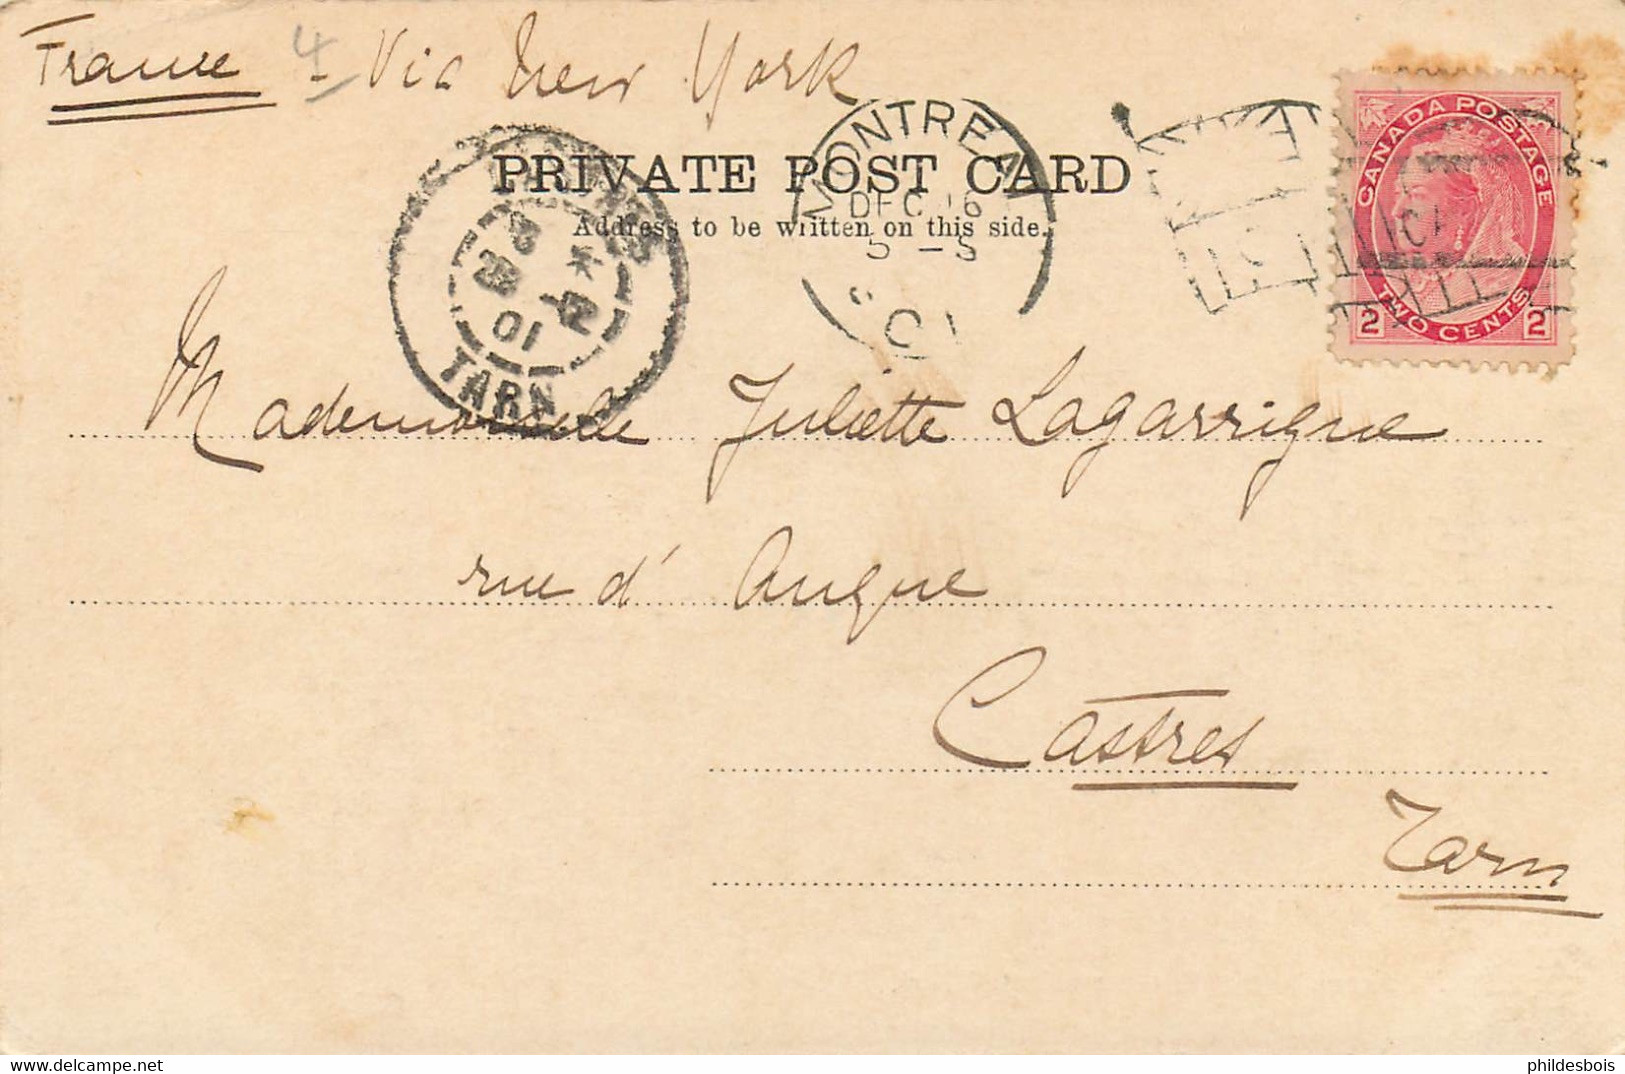 France 4 - Via New York
PRIVATE POST CARD
Address to be written on this side.
MONTREAL
DEC 16
5 - S
01
CANADA POSTAGE
TWO CENTS
2 2
01
TARN
Mademoiselle Juliette Lagarrigue
rue d'Anque
Castres
Tarn
delcampe.net
phildesbois